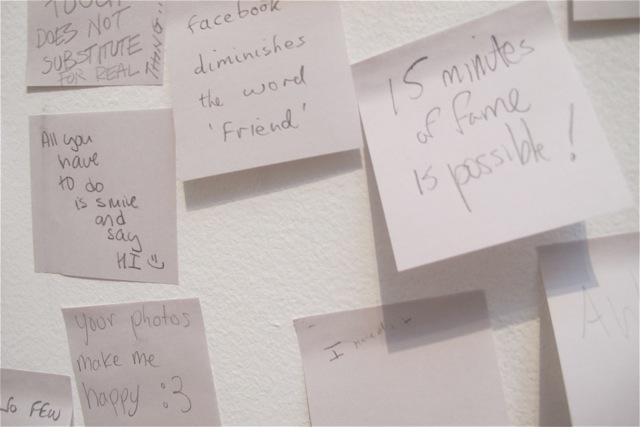 TOUCH
DOES NOT
SUBSTITUTE
FOR REAL
THING
facebook
diminishes
the word
'Friend'
15 minutes
of fame
is possible!
All you
have
to do
is smile
and
say
HI
your photos
make me
happy :3
I
So FEW